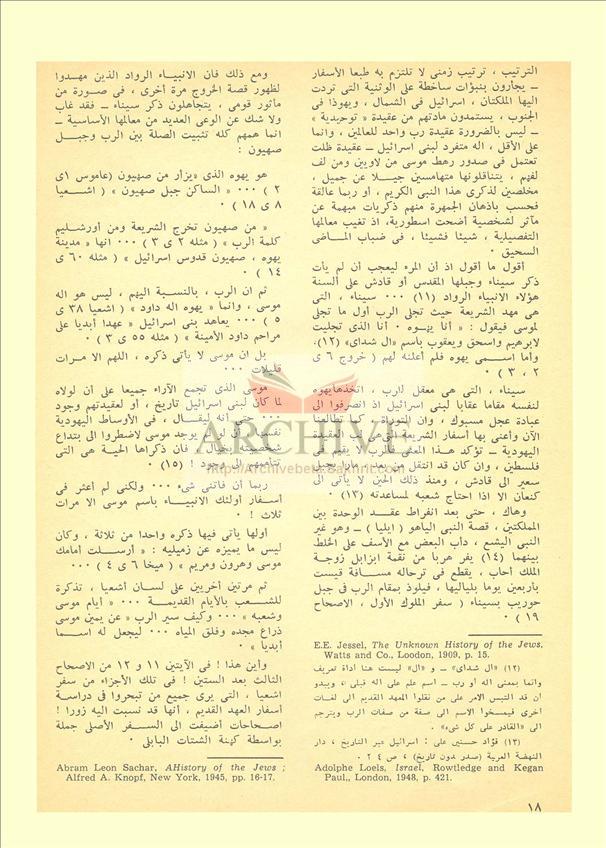 الترتيب ، ترتيب زمنى لا تلتزم به طبعا الأسفار
ــ يجأرون بنبؤات ساخطة على الوثنية التى تردت
اليها الملكتان ، اسرائيل فى الشمال ، ويهوذا فى
الجنوب ، يستمدون مادتهم من عقيدة « توحيدية »
ــ ليس بالضرورة عقيدة رب واحد للعالمين ، وانما
على الأقل ، اله متفرد لبنى اسرائيل ــ عقيدة ظلت
تعتمل فى صدور رهط موسى من لاويين ومن لف
لفهم ، يتناقلونها متهامسين جيلا عن جميل ،
مخلصين لذكرى هذا النبى الكريم ، أو ربما عالقة
فحسب باذهان الجمهرة منهم ذكريات مبهمة عن
مآثر لشخصية أضحت اسطورية، اذ تغيب معالمها
التفصيلية ، شيئا فشيئا ، فى ضباب الماضى
السحيق ٠
أقول ما أقول اذ أن المرء ليعجب أن لم يأت
ذكر سيناء وجبلها المقدس أو قادش على ألسنة
هؤلاء الانبياء الرواد (١١) ٠٠٠ سيناء ، التى
هى مهد الشريعة حيث تجلى الرب أول ما تجلى
لموسى فيقول : « أنا يهوه ٠ أنا الذى تجليت
لابرهيم واسحق ويعقوب باسم «ال شداى» (١٢)،
وأما اسمى يهوه فلم أعلنه لهم ( خروج ٦ ى
٢ ، ٣ ) ٠
سيناء ، التى هى معقل للرب ، اتخذها يهوه
لنفسه مقاما عقابا لبنى اسرائيل اذ انصرفوا الى
عبادة عجل مسبوك ، وان التوراة كما تطالعنا
الآن وأعنى بها أسفار الشريعة التى هى لب العقيدة
اليهودية ــ تؤكد هذا المعنى فالرب لا يقيم فى
فلسطين ، وان كان قد انتقل من بعد، مارا بجبل
سعير الى قادش ، ومنذ ذلك الحين لا يأتى الى
كنعان الا اذا احتاج شعبه لمساعدته (١٣) ٠
وهاك ، حتى بعد انفراط عقد الوحدة بين
المملكتين ، قصة النبى الياهو ( ايليا ) ــ وهو غير
النبى اليشع ، داب البعض مع الأسف على الخلط
بينهما (١٤) يفر هربا من نقمة ايزابل زوجة
الملك أحاب ، يقطع فى ترحاله مسافة قيست
بأربعين يوما بلياليها ، فيلوذ بمقام الرب فى جبل
حوريب بسيناء ( سفر الملوك الأول ، الاصحاح
١٩ ) ٠
E.E. Jessel, The Unknown History of the Jews,
Watts and Co., Loodon, 1909, p. 15.
(١٢) «ال شداى» ــ و «ال» ليست هنا اداة تعريف
وانما بمعنى اله أو رب ــ اسم علم على اله قبلى ، ويبدو
ان قد التبس الامر على من نقلوا العهد القديم الى لغات
اخرى فيمسخوا الاسم الى صفة من صفات الرب ويترجم
الى «القادر على كل شىء» ٠
(١٣) فؤاد حسنين على : اسرائيل عبر التاريخ ، دار
النهضة العربية (صدر بدون تاريخ) ، ص ٢٤ ٠
Adolphe Loels, Israel, Rowtledge and Kegan
Paul,, London, 1948, p. 421.
ومع ذلك فان الانبياء الرواد الذين مهدوا
لظهور قصة الخروج مرة أخرى ، فى صورة من
مأثور قومى ، يتجاهلون ذكر سيناء ــ فقد غاب
ولا شك عن الوعى العديد من معالمها الأساسية ــ
انما همهم كله تثبيت الصلة بين الرب وجبل
صهيون :
هو يهوه الذى «يزأر من صهيون (عاموس ١ى
٢ ) ٠٠٠ « الساكن جبل صهيون » ( اشعيا
٨ ى ١٨ ) ٠
« من صهيون تخرج الشريعة ومن أورشليم
كلمة الرب » ( مثله ٢ ى ٣ ) ٠٠٠ انها « مدينة
يهوه ، صهيون قدوس اسرائيل » ( مثله ٦٠ ى
١٤ ) ٠
ثم ان الرب ، بالنسبة اليهم ، ليس هو اله
موسى ، وانما « يهوه اله داود » ( اشعيا ٣٨ ى
٥ ) ٠٠٠ يعاهد بنى اسرائيل « عهدا أبديا على
مراحم داود الأمينة » ( مثله ٥٥ ى ٣ ) ٠
بل ان موسى لا يأتى ذكره ، اللهم الا مرات
قليلات ٠٠٠
موسى الذى تجمع الآراء جميعا على أن لولاه
لما كان لبنى اسرائيل تاريخ ، أو لعقيدتهم وجود
٠٠٠ حتى أنه ليقال ، فى الأوساط اليهودية
نفسها ، أن لو لم يوجد موسى لاضطروا الى ابتداع
شخصيته بالخيال ، فان ذكراها الحية هى التى
تنأمهم الى وجود ! (١٥) ٠
ربما أن فاتنى شىء ٠٠٠ ولكنى لم أعثر فى
أسفار أولئك الانبياء باسم موسى الا مرات
ثلاث ! ٠
أولها يأتى فيها ذكره واحدا من ثلاثة ، وكان
ليس ما يميزه عن زميليه : « أرسلت أمامك
موسى وهرون ومريم » ( ميخا ٦ ى ٤ ) ٠٠٠
ثم مرتين أخريين على لسان أشعيا ، تذكرة
للشعب بالأيام القديمة ٠٠٠ « أيام موسى
وشعبه » ٠٠٠ وكيف سير الرب « عن يمين موسى
ذراع مجده وفلق المياه ٠٠٠ ليجعل له اسما
أبديا » ٠
وأين هذا ! فى الآيتين ١١ و ١٢ من الاصحاح
الثالث بعد الستين ! فى تلك الأجزاء من سفر
اشعيا ، التى يرى جميع من تبحروا فى دراسة
أسفار العهد القديم ، أنها قد نسبت اليه زورا !
اصحاحات أضيفت الى السفر الأصلى جملة
بواسطة كهنة الشتات البابلى ٠
Abram Leon Sachar, AHistory of the Jews ;
Alfred A. Knopf, New York, 1945, pp. 16-17.
ARCHIVE
http://Archivebeta.Sakhrit.com
١٨